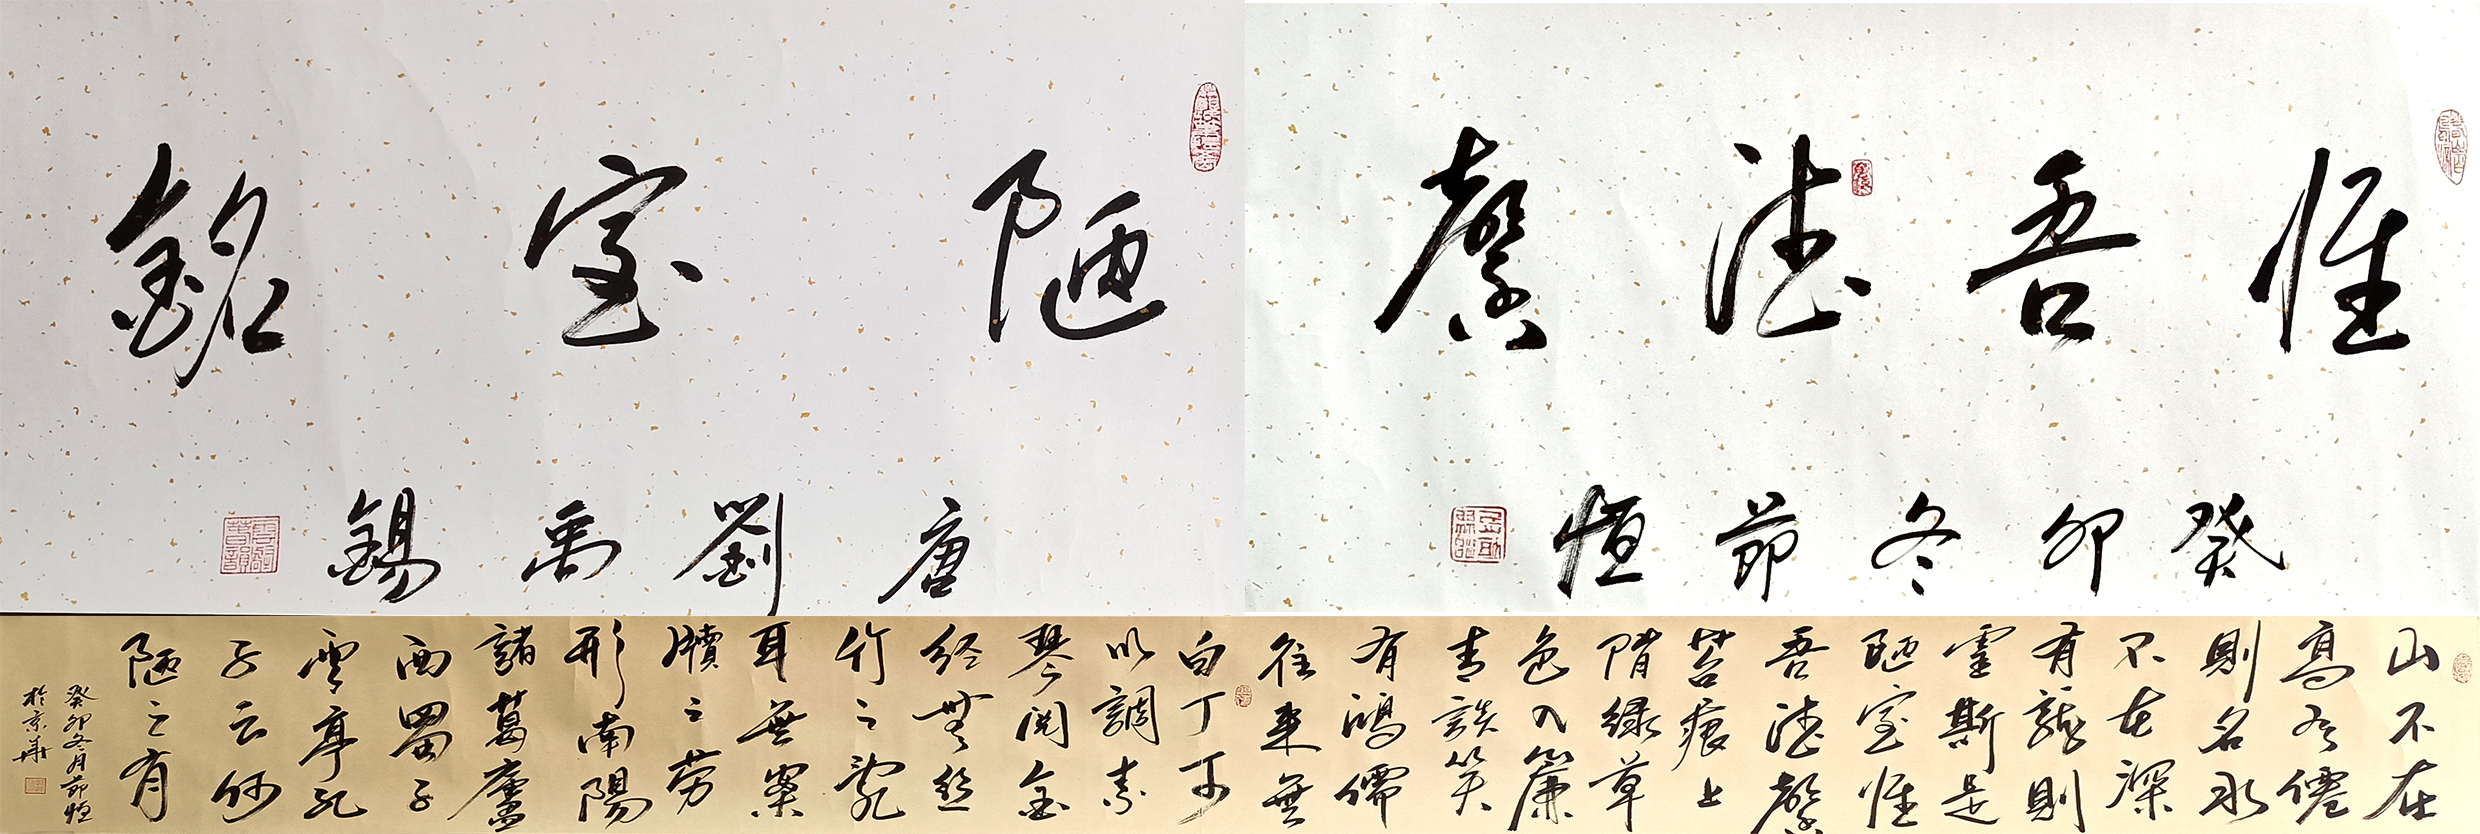 陋室銘
唐劉禹錫
惟吾德馨
癸卯冬節恒
山不在
高有僊
則名水
不在深
有龍則
靈斯是
陋室惟
吾德馨
苔痕上
階緑草
色入簾
青談笑
有鴻儒
往來無
白丁可
以調素
琴閱金
經無絲
竹之亂
耳無案
牘之勞
形南陽
諸葛廬
西蜀子
雲亭孔
子云何
陋之有
癸卯冬月節恒
於京華